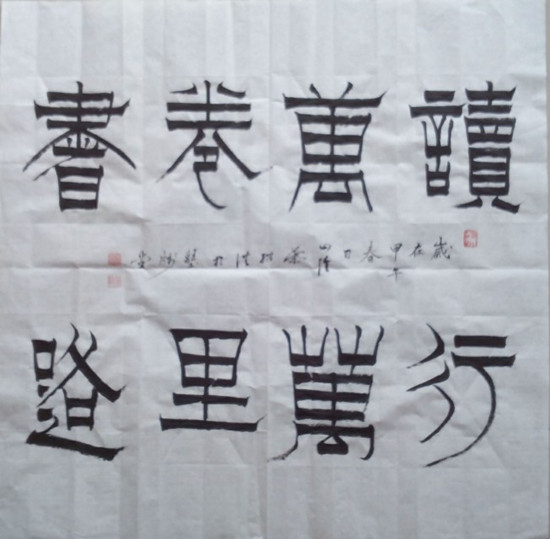 讀萬卷書
歲在甲午春日
行萬里路